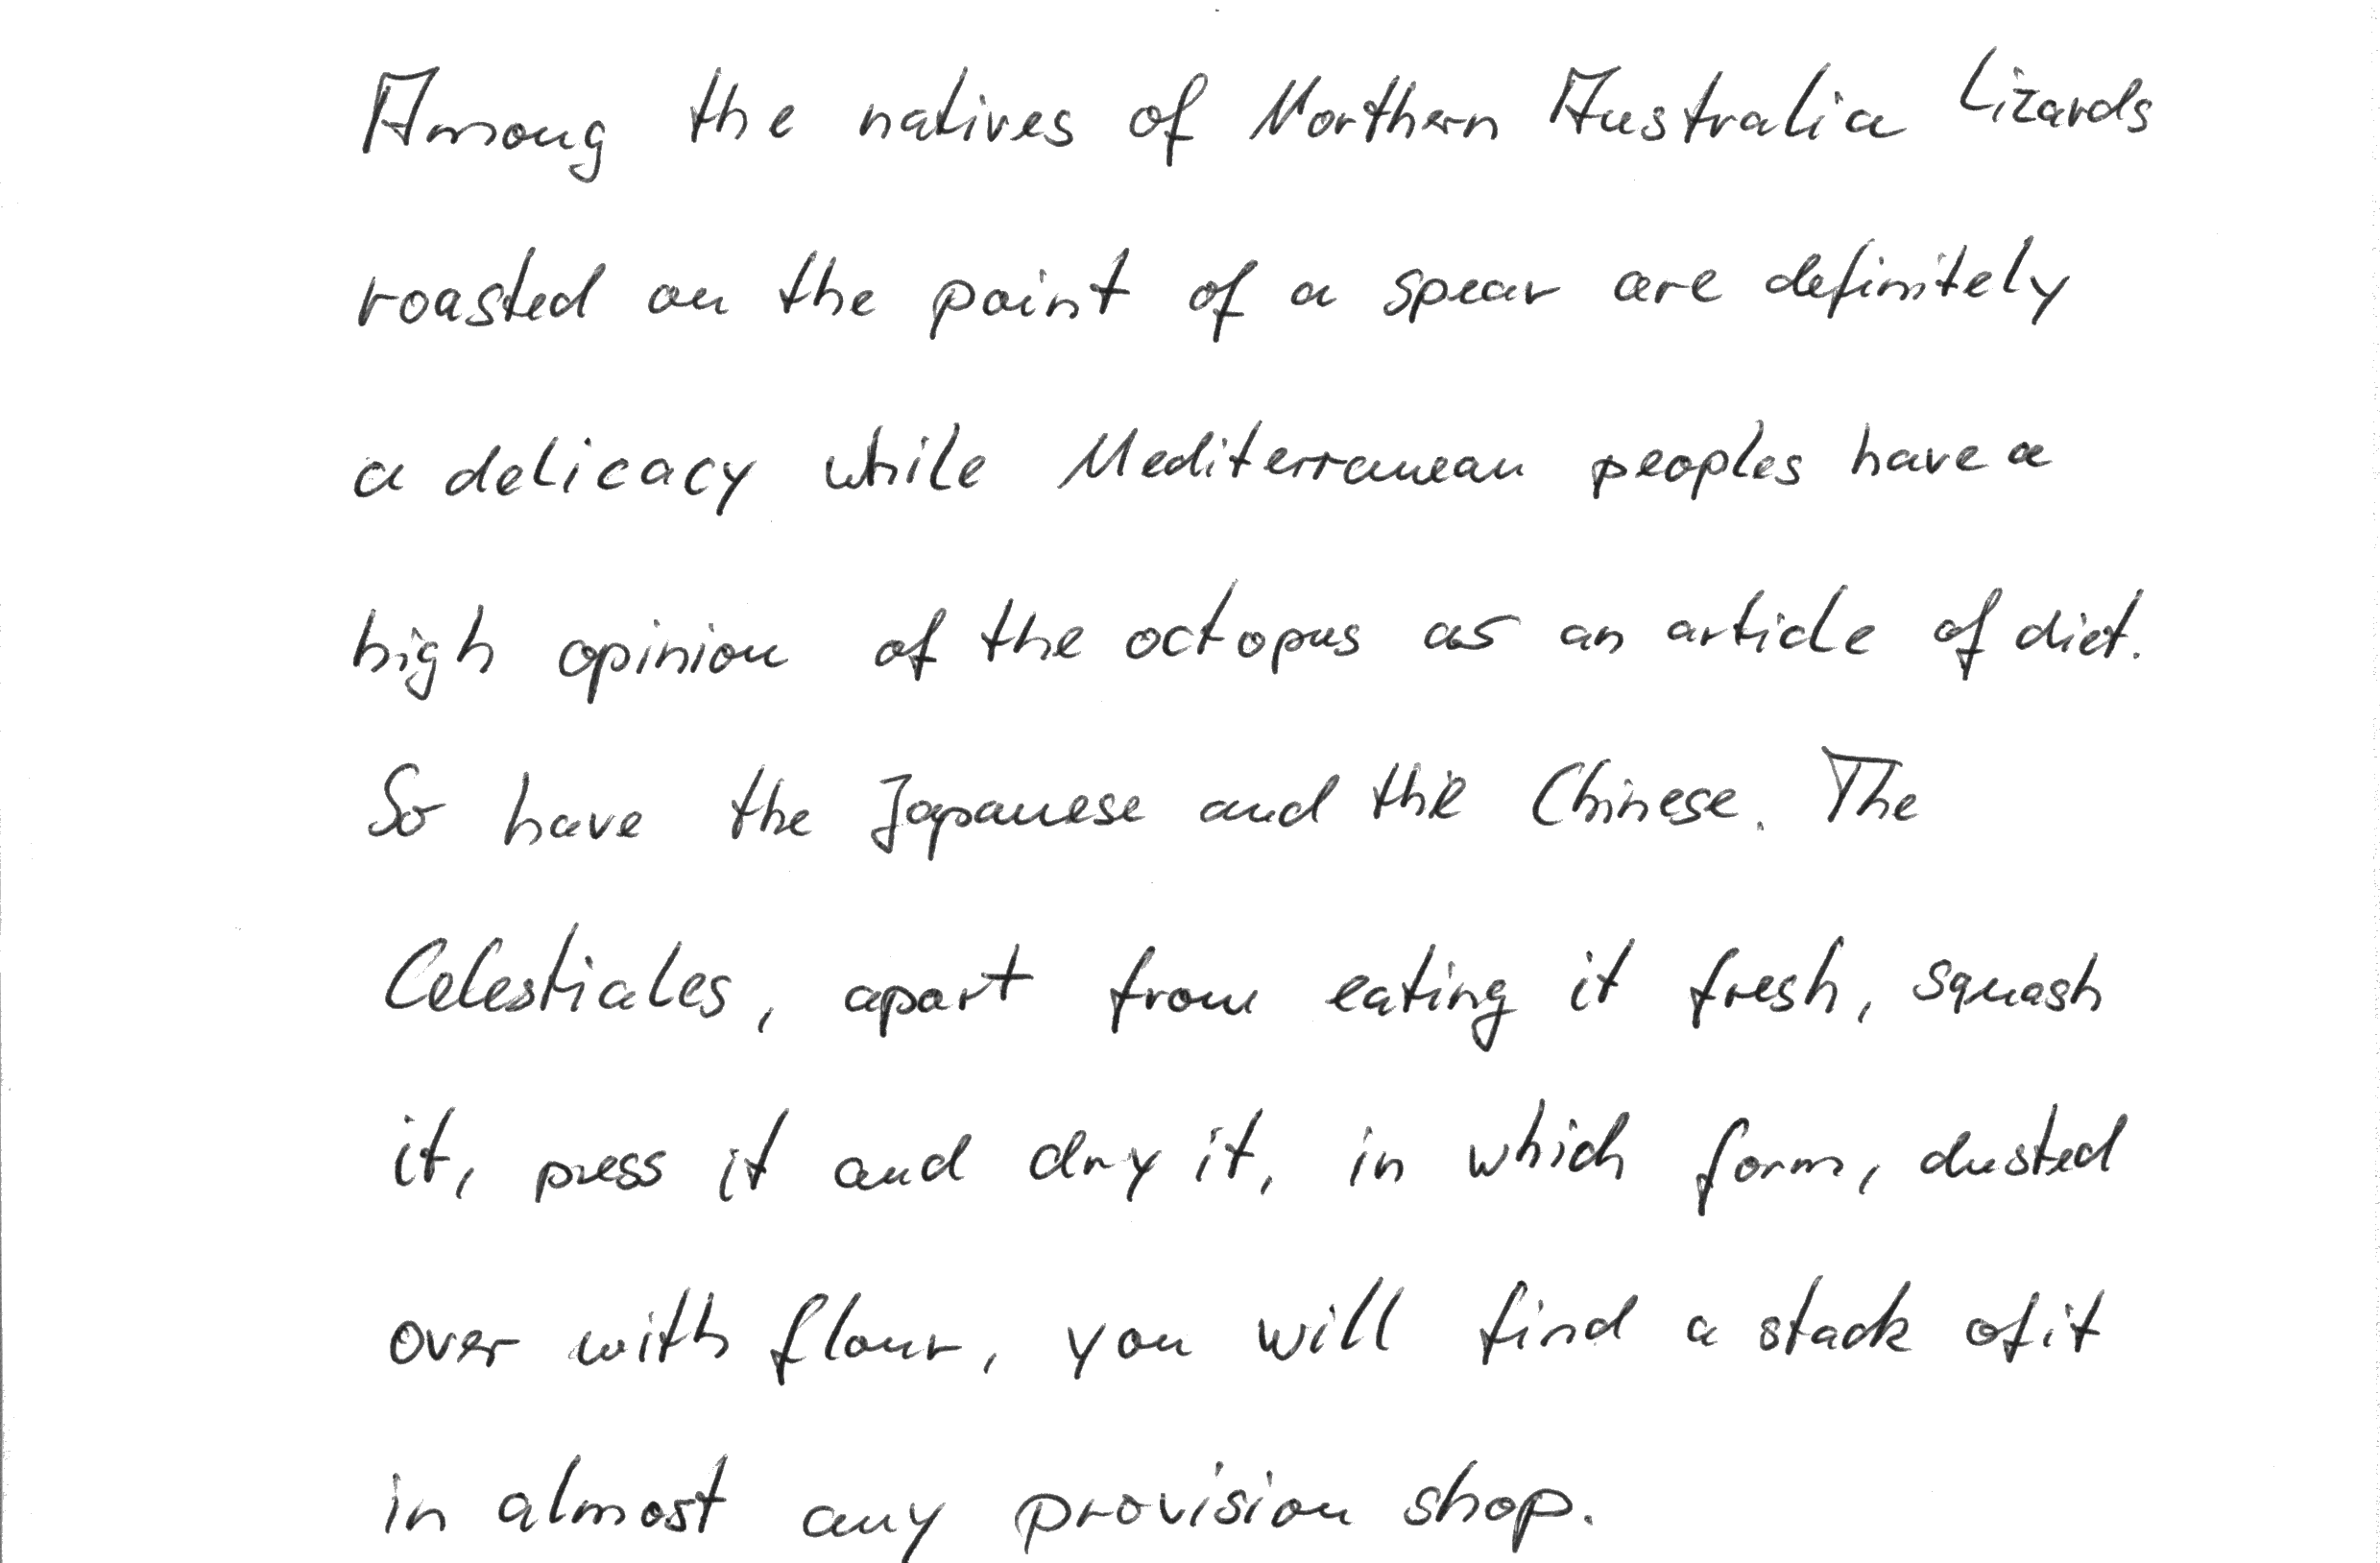 Among the natives of Northern Australia lizards
roasted on the point of a spear are definitely
a delicacy while Mediterranean peoples have a
high opinion of the octopus as an article of diet.
So have the Japanese and the Chinese. The
Celestiales, apart from eating it fresh, squash
it, press it and dry it, in which form, dusted
over with flour, you will find a stack of it
in almost any provision shop.